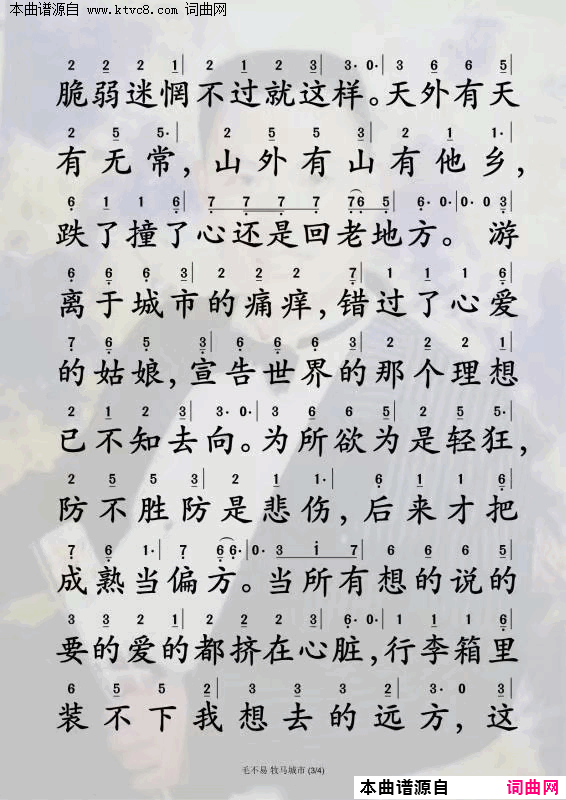 本曲谱源自 www.ktvc8.com 词曲网
2 2 2 1 | 2 1 2 3 | 3· 0· | 3 6 6 5 |
脆弱迷惘不过就这样。天外有天
2 5 5· | 2 5 5 3 | 2 1 1· |
有无常,山外有山有他乡,
6 1 1 6 | 7 7 7 7 | 7 6 5 | 6· 0· | 0· 0 3 |
跌了撞了心还是回老地方。 游
6 6 6 3 | 2 2 2 7 | 1 1 1 6 |
离于城市的痛痒,错过了心爱
7 6 5· 3 | 6 6 6 3 | 2 2 2 1 |
的姑娘,宣告世界的那个理想
2 1 2 3 | 3· 0· | 3 6 6 5 | 2 5 5· |
已不知去向。为所欲为是轻狂,
2 5 5 3 | 2 1 1· | 6 1 1 6 |
防不胜防是悲伤,后来才把
7 6 1· | 7 6 6· | 0· 3 i 7 | 6 6 6 5 |
成熟当偏方。当所有想的说的
3 3 2 1 | 2 2 2 3 | 6· 0· | 1 1 1 6 |
要的爱的都挤在心脏,行李箱里
6 5 5 2 | 3 3 3 2 | 3· 0 3 |
装不下我想去的远方,这
毛不易 牧马城市 (3/4)
本曲谱源自 词曲网